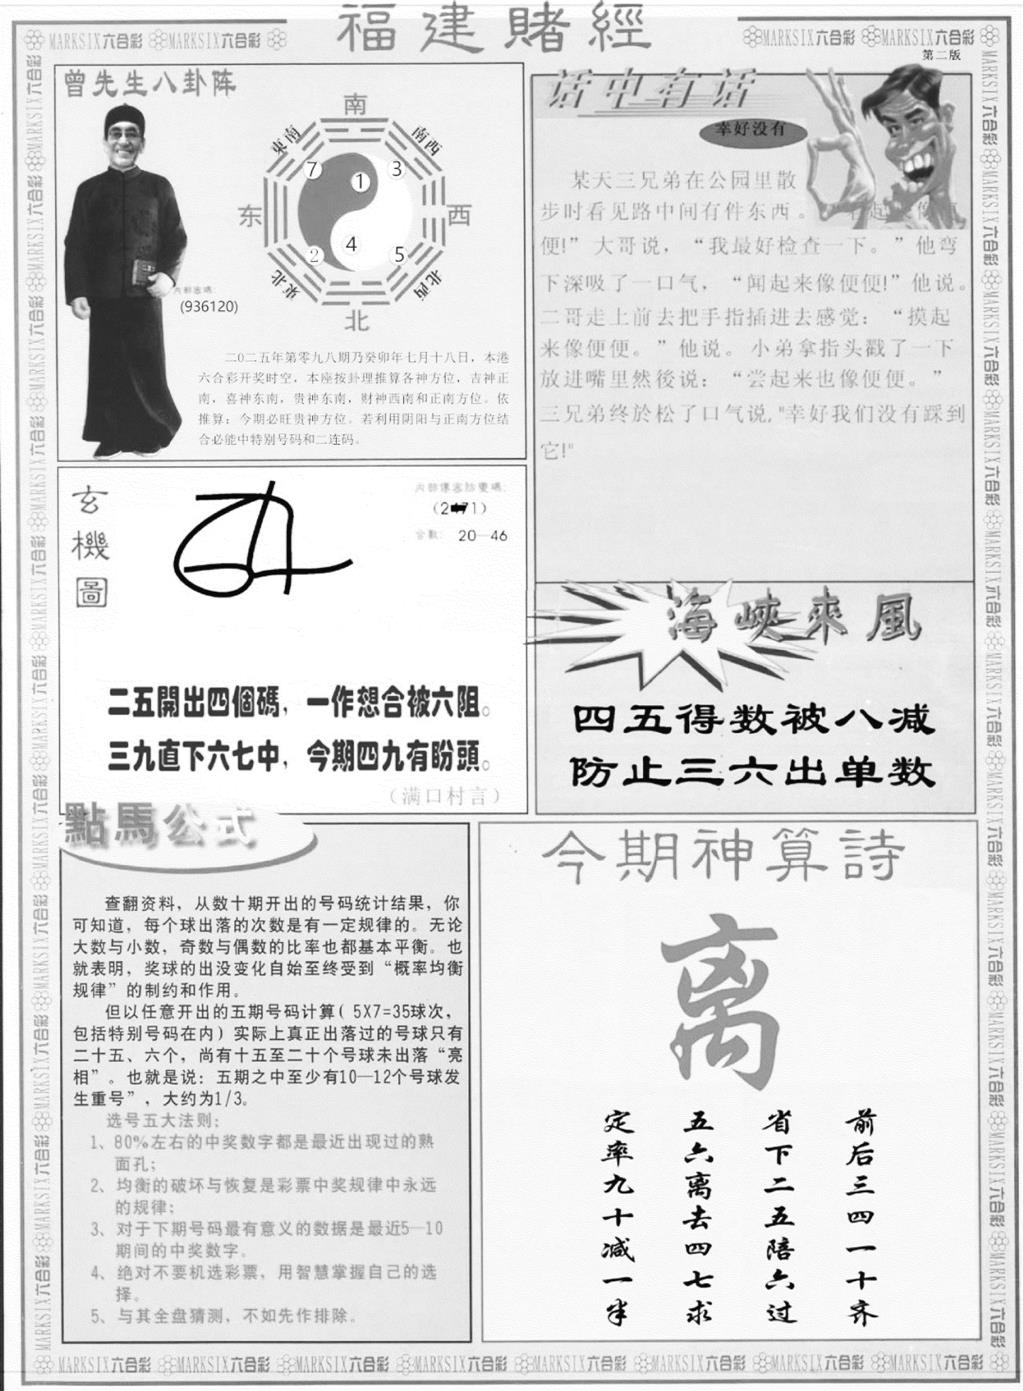 福建賭經
MARKSIX六合彩 MARKSIX六合彩
MARKSIX六合彩 MARKSIX六合彩
第二版
曾先生八卦阵
南
東南
南西
7
1
3
东
西
2
4
5
東北
北西
北
内部密碼:
(936120)
二0二五年第零九八期乃癸卯年七月十八日，本港
六合彩开奖时空，本座按卦理推算各神方位，吉神正
南，喜神东南，贵神东南，财神西南和正南方位。依
推算：今期必旺贵神方位。若利用阴阳与正南方位结
合必能中特别号码和二连码。
话中有话
幸好没有
某天三兄弟在公园里散
步时看见路中间有件东西。
便!”大哥说，“我最好检查一下。”他弯
下深吸了一口气，“闻起来像便便!”他说。
二哥走上前去把手指插进去感觉：“摸起
来像便便。”他说。小弟拿指头戳了一下
放进嘴里然後说：“尝起来也像便便。”
三兄弟终於松了口气说,"幸好我们没有踩到
它!"
玄機圖
内部傳密防變碼:
(2 71)
合數: 20—46
二五開出四個碼，一作想合被六阻。
三九直下六七中，今期四九有盼頭。
（满口村言）
海峽來風
四五得数被八减
防止三六出单数
點馬公式
查翻资料，从数十期开出的号码统计结果，你
可知道，每个球出落的次数是有一定规律的。无论
大数与小数，奇数与偶数的比率也都基本平衡。也
就表明，奖球的出没变化自始至终受到“概率均衡
规律”的制约和作用。
但以任意开出的五期号码计算( 5X7=35球次，
包括特别号码在内）实际上真正出落过的号球只有
二十五、六个，尚有十五至二十个号球未出落“亮
相”。也就是说：五期之中至少有10—12个号球发
生重号”，大约为1/3。
选号五大法则：
1、80%左右的中奖数字都是最近出现过的熟
面孔；
2、均衡的破坏与恢复是彩票中奖规律中永远
的规律；
3、对于下期号码最有意义的数据是最近5—10
期间的中奖数字。
4、绝对不要机选彩票，用智慧掌握自己的选
择。
5、与其全盘猜测，不如先作排除。
今期神算詩
离
前后三四一十齐
省下二五陪六过
五六离去四七求
定率九十减一半
MARKSIX六合彩 MARKSIX六合彩 MARKSIX六合彩 MARKSIX六合彩 MARKSIX六合彩 MARKSIX六合彩 MARKSIX六合彩 MARKSIX六合彩